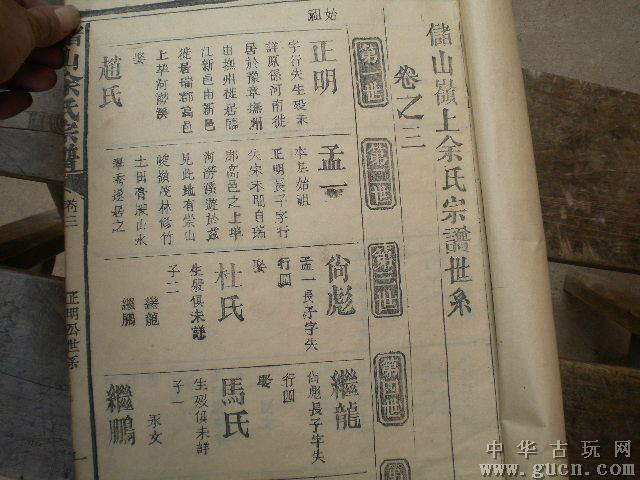 儲山嶺上余氏宗譜世系
卷之三
第一世
第二世
第三世
第四世
第
始祖
正明
字行失生殁未
詳原係河南徙
居於豫章撫州
由撫州徙居臨
江新邑由新邑
徙居瑞郡高邑
上
娶
趙氏
孟一
本基始祖
正明長子字行
失宋末間自瑞
郡高邑之上
見此地有崇山
峻嶺茂林修竹
土田膏深山水
秀遂居之
尙彪
孟一長子字失
行四
娶
杜氏
生殁俱未詳
子二
繼龍
繼鵬
繼龍
尙彪長子字失
行四
娶
馬氏
生殁俱未詳
子一
永文
繼鵬
儲山余氏宗譜
卷三
正明公世系
一
中华古玩网
www.gucn.com